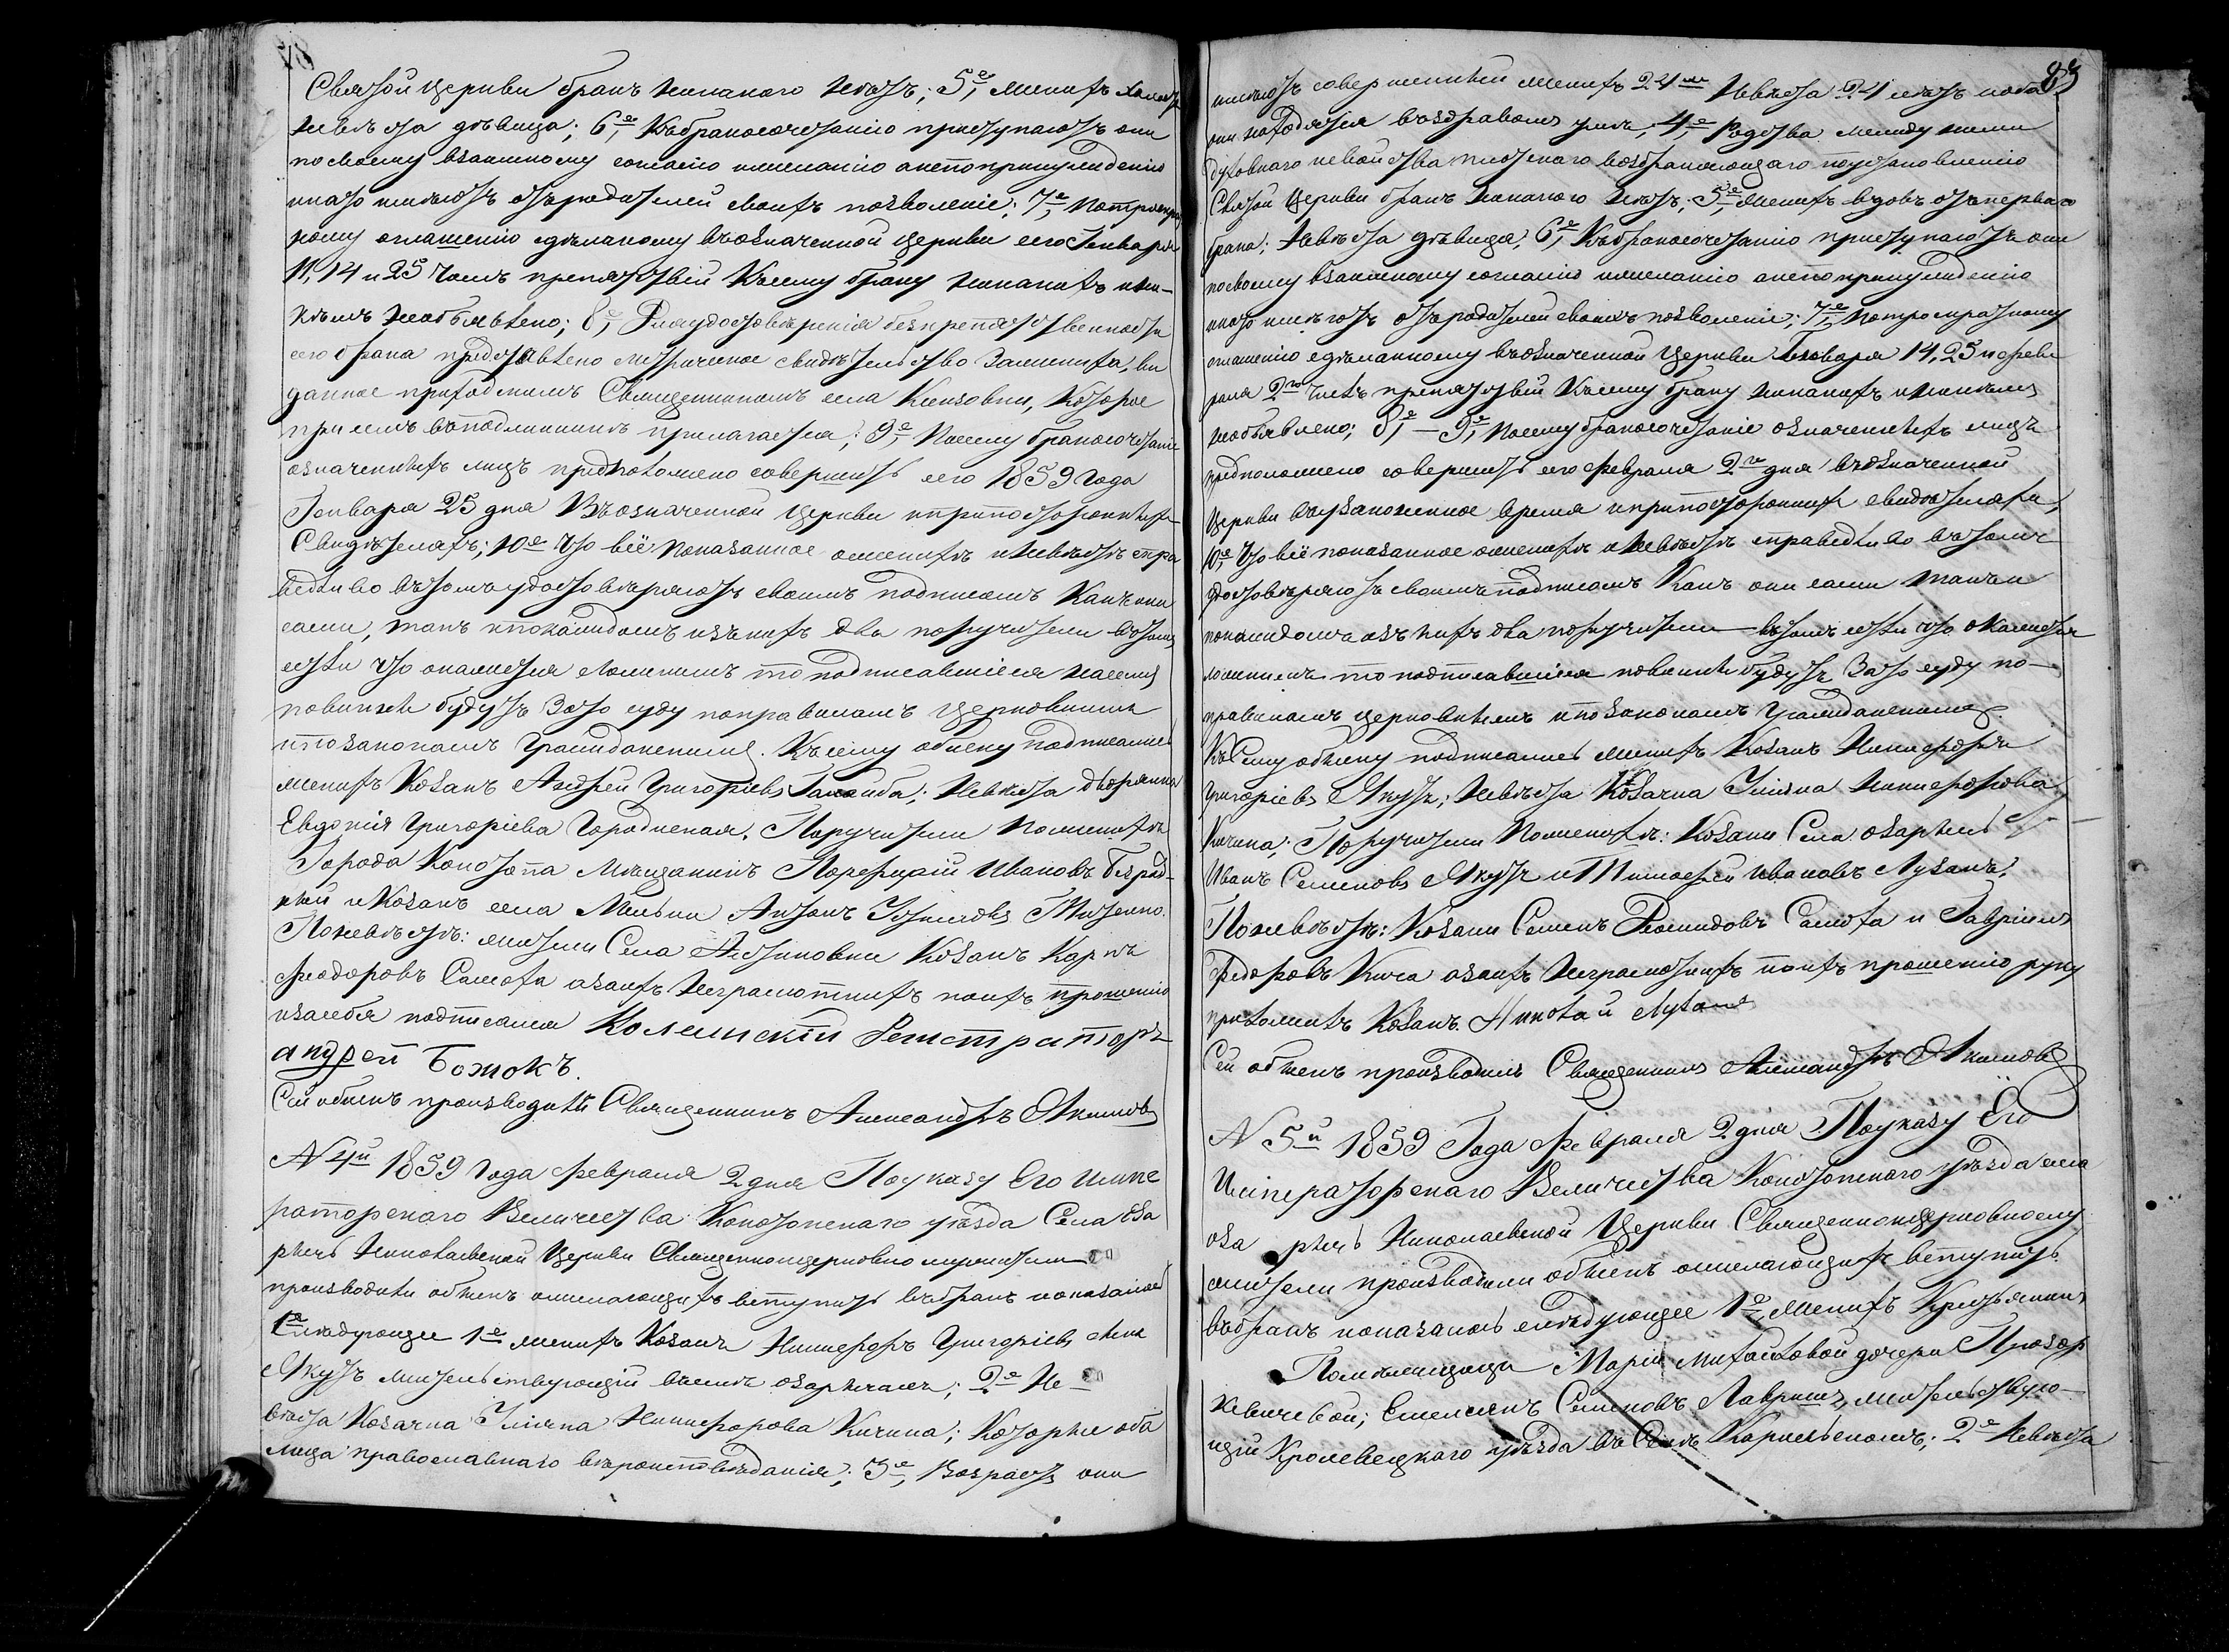 Святой Церкви бракъ никакого нѣтъ; 5е, Женихъ холостъ
невѣста дѣвица; 6е, Къ бракосочетанію приступаютъ они
по своему взаимному согласію и желанію а не по принужденію
и на то имѣютъ отъ родителей своихъ позволеніе; 7е, По троекрат
ному оглашенію сдѣланому въ означенной Церкви сего Генваря
11, 14 и 25 числъ препятствій къ сему браку никакихъ ни-
кѣмъ необъявлено; 8е, Для удостовѣренія безпрепятственности
сего брака представлено метрическое свидѣтельство Жениха, вы
данное приходскимъ Священникомъ села, Которое
при семъ въ подлинникѣ прилагается; 9е, Посему бракосочетаніе
означенныхъ лицъ предположено совершить сего 1859 года
Генваря 25 дня въ означенной Церкви и при постороннихъ
Свидѣтеляхъ; 10е Что всё показанное о женихѣ и невѣстѣ спра
ведливо въ томъ удостовѣряютъ своимъ подписомъ Какъ они
сами, такъ и по каждомъ изъ нихъ два поручители въ томъ
естли что окажется ложнымъ то подписавшіеся насемъ
повинны будутъ за то суду по правиламъ Церковнымъ
и по законамъ Гражданскимъ. Къ сему обыску подписались
женихъ Козакъ Андрей Григоріевъ; Невѣста дворянка
Евдокія Григоріева Городиская. Поручители По женихѣ
Города Конотопа Мѣщанинъ Порфирій Ивановъ
и Козакъ села Антонъ
По невѣстѣ: жители Села Козакъ Карпъ
Феодоровъ Самота а за ихъ неграмотныхъ по ихъ прошенію
и за себя подписался Колежскій Регистраторъ
андрей Божокъ.
Сей обыскъ производилъ Священникъ Александръ Якимовъ
N 4й 1859 года февраля 2 дня По указу Его Импе
раторскаго Величества Конотопскаго уѣзда Села Оза
ричъ Николаевской Церкви Священноицерковнослужители
производили обыскъ о желающихъ вступить въ бракъ и показалось
слѣдующее 1е женихъ Козакъ Никифоръ Григоріевъ сынъ
Якутъ жительствующій въ селѣ Озаричахъ; 2е Не-
вѣста Козачка Уліяна Никифорова Кичина; Которые оба
лица православнаго вѣроисповѣданія; 3е, Возрастъ они
83
имѣютъ совершенный женихъ 24 Невѣста 21 лѣтъ и оба
они находятся въ здравомъ умѣ, 4е, Родства между ними
духовнаго не свойства плотскаго возбраняющаго по установленію
Святой Церкви бракъ никакого нѣтъ; 5е, Женихъ вдовъ отъ перваго
брака; Невѣста дѣвица; 6е, Къ бракосочетанію приступаютъ они
по своему взаимному согласію и желанію а не по принужденію
и на то имѣютъ отъ родителей своихъ позволеніе; 7е, По троекратному
оглашенію сдѣланному въ означенной Церкви Генваря 14, 25 и февр
раля 2го числъ препятствій къ сему браку никакихъ и никѣмъ
необъявлено; 8е, — 9е, Посему бракосочетаніе означенныхъ лицъ
предположено совершить сего февраля 2го дня въ означенной
Церкви въ узаконенное время и при постороннихъ свидѣтеляхъ;
10е, Что всё показанное о женихѣ и невѣстѣ справедливо въ томъ
удостовѣряютъ своимъ подписомъ Какъ они сами такъ и
по каждомъ изъ нихъ два поручители въ томъ естли что окажется
ложнымъ то подписавшіеся повинны будутъ за то суду по
правиламъ церковнымъ и по законамъ Гражданскимъ.
Къ Сему обыску подписались женихъ Козакъ Никифоръ
Григоріевъ Якутъ; Невѣста Козачка Уліяна Никифорова
Кичина; Поручители По женихѣ: Козаки Села Озаричъ
Иванъ Семеновъ Якутъ и Тимофей Ивановъ Лузанъ;
По невѣстѣ: Козаки Семенъ Самота и Гавріилъ
Федоровъ Кича а за ихъ неграмотныхъ по ихъ прошенію руку
приложилъ Козакъ Николай Лузанъ
Сей обыскъ производилъ Священникъ Александръ Якимовъ
N 5й 1859 Года февраля 2 дня По указу Его
Императорскаго Величества Конотопскаго уѣзда села
Озаричъ Николаевской Церкви Священноицерковнослу
жители производили обыскъ о желающихъ вступить
въ бракъ и показалось слѣдующее 1е, Женихъ Крестьянинъ
Помѣщицы Маріи Михайловой дочери Прокоп
кевичевой; Емельянъ Семеновъ Лавришъ, жительствую-
щій Кролевецкаго уѣзда въ Селѣ; 2е Невѣста